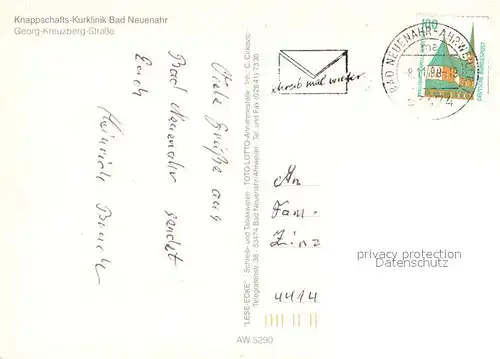 Knappschafts-Kurklinik Bad Neuenahr
Georg-Kreuzberg-Straße
Viele Grüße aus
Bad Neuenahr sendet
Euch
Heinrich
"LESE-ECKE" Schreib- und Tabakwaren TOTO-LOTTO-Annahmestelle Inh. C. Cirkovic
Telegrafenstr. 36 · 53474 Bad Neuenahr-Ahrweiler · Tel. und Fax (02641) 3330
schreib mal wieder
BAD NEUENAHR-AHRWEILER
53474
100
DEUTSCHE BUNDESPOST
An
Fam.
4414
privacy protection
Datenschutz
AW 5290